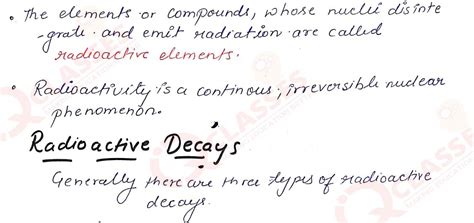 • The elements or compounds, whose nuclei disinte
-grate and emit radiation are called
radioactive elements.
• Radioactivity is a continous, irreversible nuclear
phenomenon.
Radioactive Decays
Generally there are three types of radioactive
decays.